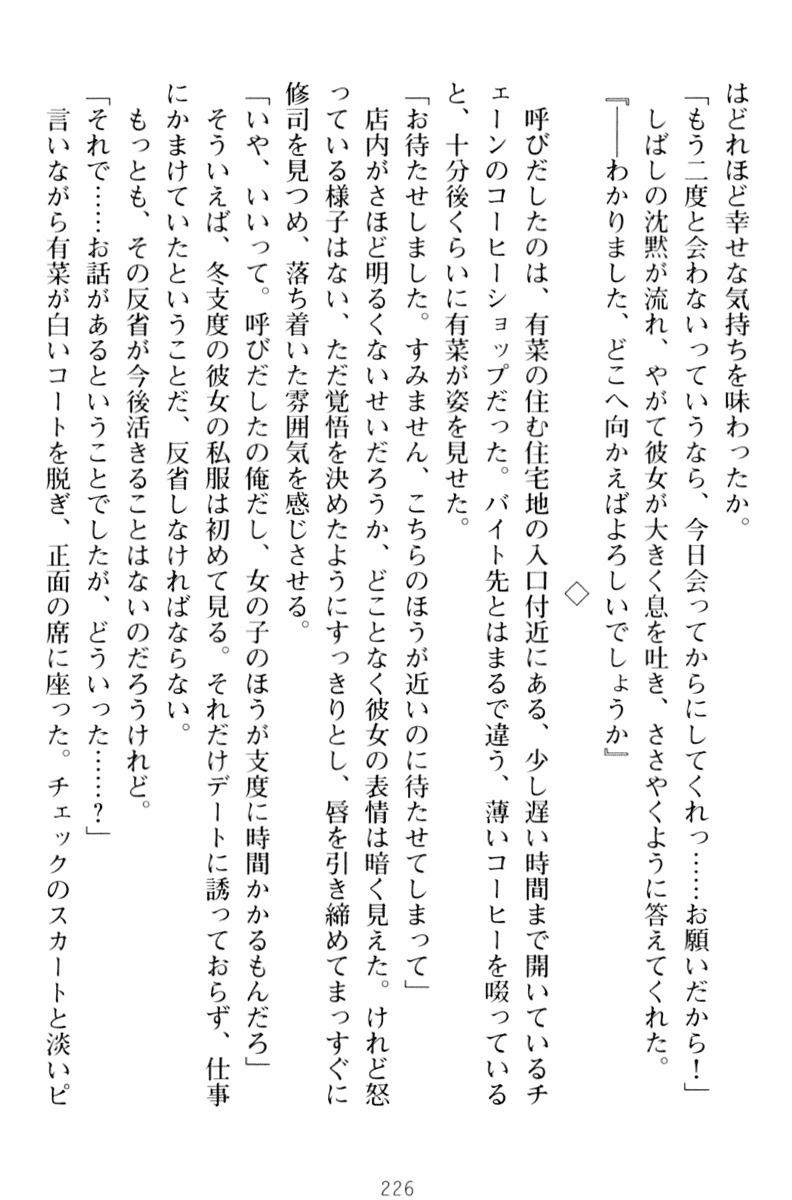 はどれほど幸せな気持ちを味わったか。
「もう二度と会わないっていうなら、今日会ってからにしてくれっ……お願いだから！」
しばしの沈黙が流れ、やがて彼女が大きく息を吐き、ささやくように答えてくれた。
『――わかりました、どこへ向かえばよろしいでしょうか』
◇
呼びだしたのは、有菜の住む住宅地の入口付近にある、少し遅い時間まで開いているチ
ェーンのコーヒーショップだった。バイト先とはまるで違う、薄いコーヒーを啜っている
と、十分後くらいに有菜が姿を見せた。
「お待たせしました。すみません、こちらのほうが近いのに待たせてしまって」
店内がさほど明るくないせいだろうか、どことなく彼女の表情は暗く見えた。けれど怒
っている様子はない、ただ覚悟を決めたようにすっきりとし、唇を引き締めてまっすぐに
修司を見つめ、落ち着いた雰囲気を感じさせる。
「いや、いいって。呼びだしたの俺だし、女の子のほうが支度に時間かかるもんだろ」
そういえば、冬支度の彼女の私服は初めて見る。それだけデートに誘っておらず、仕事
にかまけていたということだ、反省しなければならない。
もっとも、その反省が今後活きることはないのだろうけれど。
「それで……お話があるということでしたが、どういった……？」
言いながら有菜が白いコートを脱ぎ、正面の席に座った。チェックのスカートと淡いピ
226